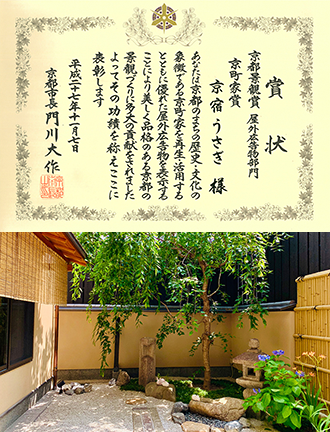 賞状
京都景観賞 屋外広告物部門
京町家賞
京宿うさぎ 様
あなたは京都のまちの歴史・文化の
象徴である京町家を再生・活用する
とともに優れた屋外広告物を表示する
ことにより美しく品格のある京都の
景観づくりに多大な貢献をされました
よってその功績を称えここに
表彰します
平成二十七年十一月七日
京都市長 門川大作